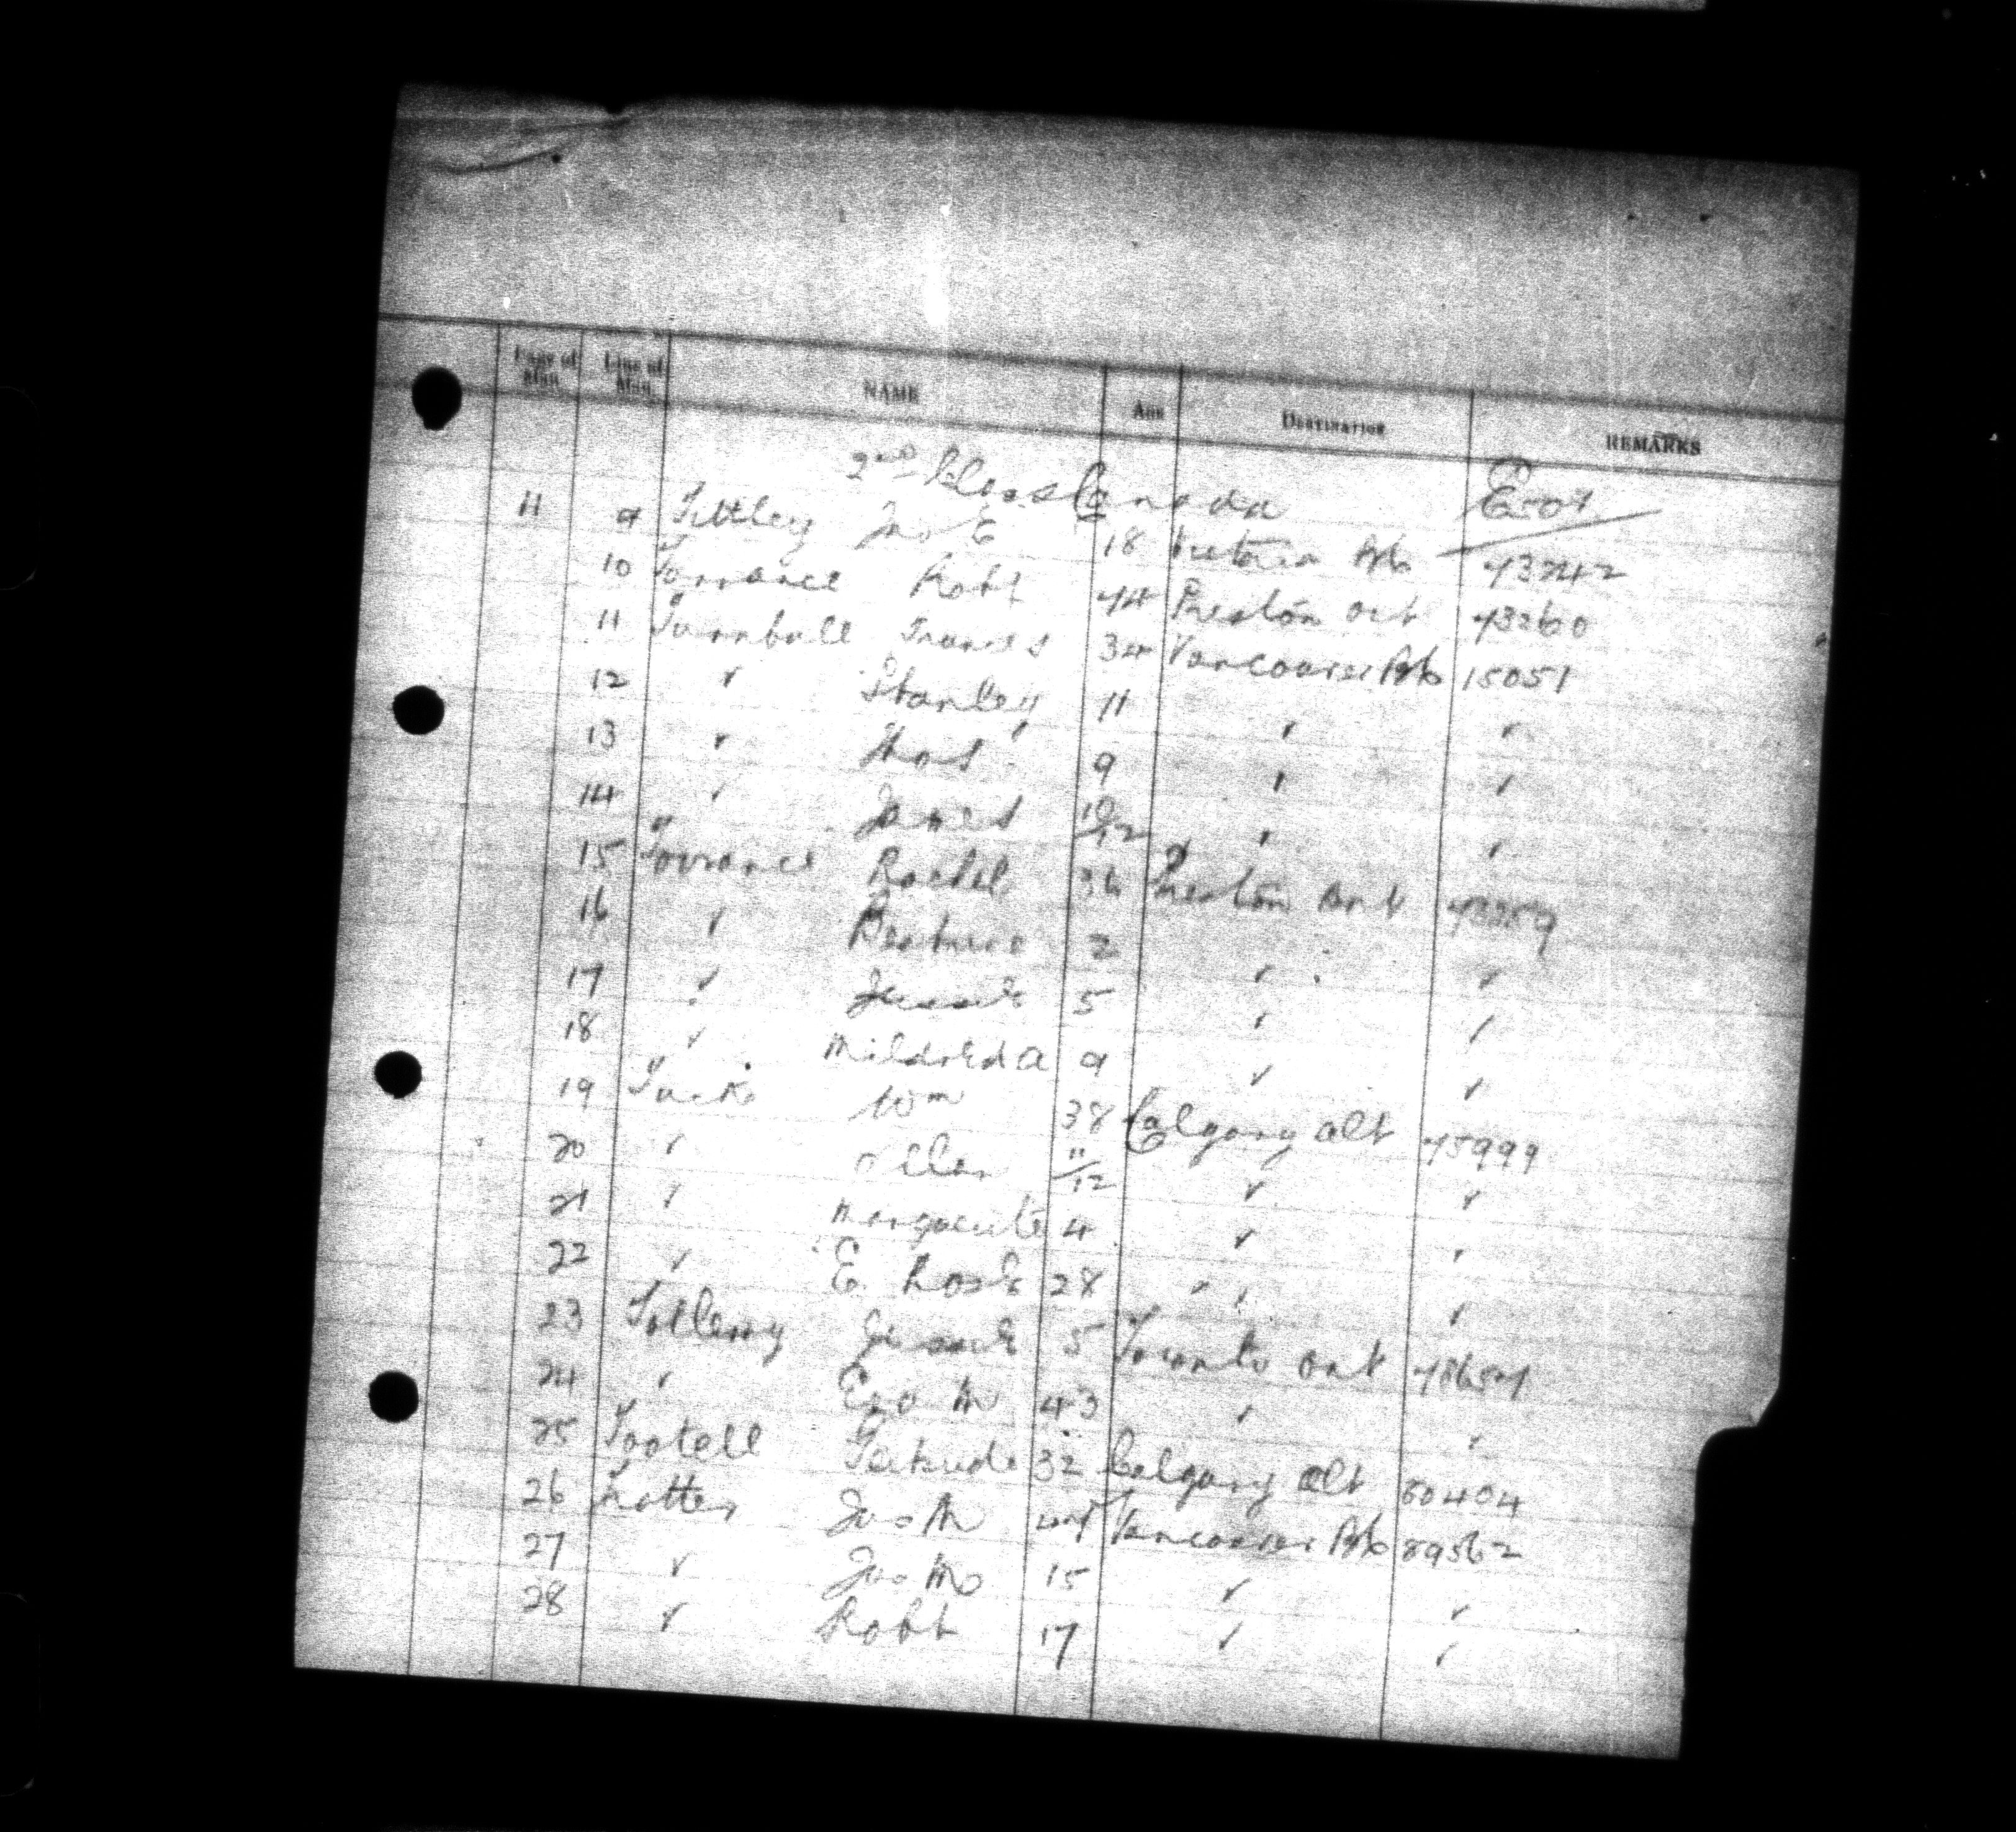 Page of Man. Line of Man. NAME AGE DESTINATION REMARKS
2nd Class Canada
11 9 Tittley Jno E 18 Victoria Bc 43242
10 Torrance Robt 44 Preston Ont 43260
11 Turnbull Frances 34 Vancouver Bc 15051
12 " Stanley 11 " "
13 " Thos 9 " "
14 " James 10/12 " "
15 Torrance Rachel 36 Preston Ont 43259
16 " Beatrice 2 " "
17 " Jessie 5 " "
18 " Mildred A 9 " "
19 Tuck Wm 38 Calgary Alt 45999
20 " Allan 11/12 " "
21 " Marguerite 4 " "
22 " E. Rose 28 " "
23 Jessie 5 Toronto Ont
24 " M 43 " "
25 Tootell Gertrude 32 Calgary Alt 80404
26 Trotter Jno M Vancouver Bc 89562
27 " Jno 15 " "
28 " Robt 17 " "